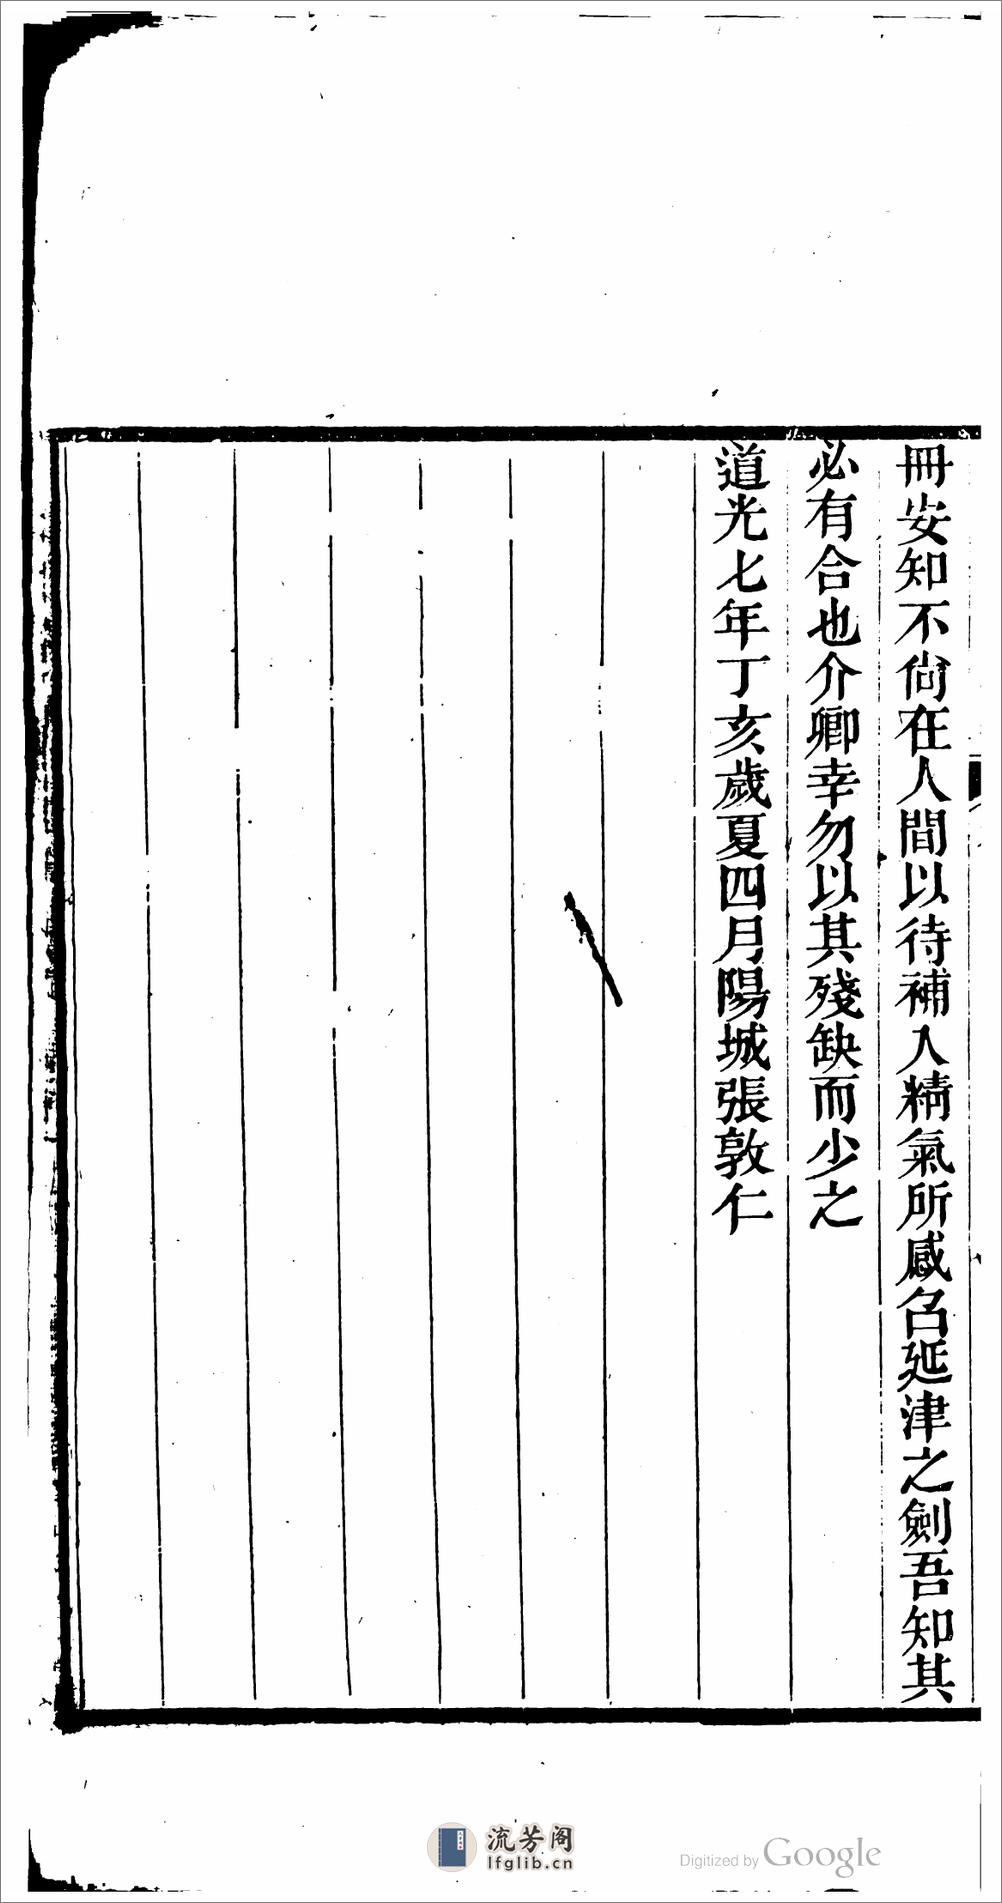 冊安知不尙在人間以待補入精氣所感召延津之劍吾知其
必有合也介卿幸勿以其殘缺而少之
道光七年丁亥歲夏四月陽城張敦仁
流芳阁
lfglib.cn
Digitized by Google